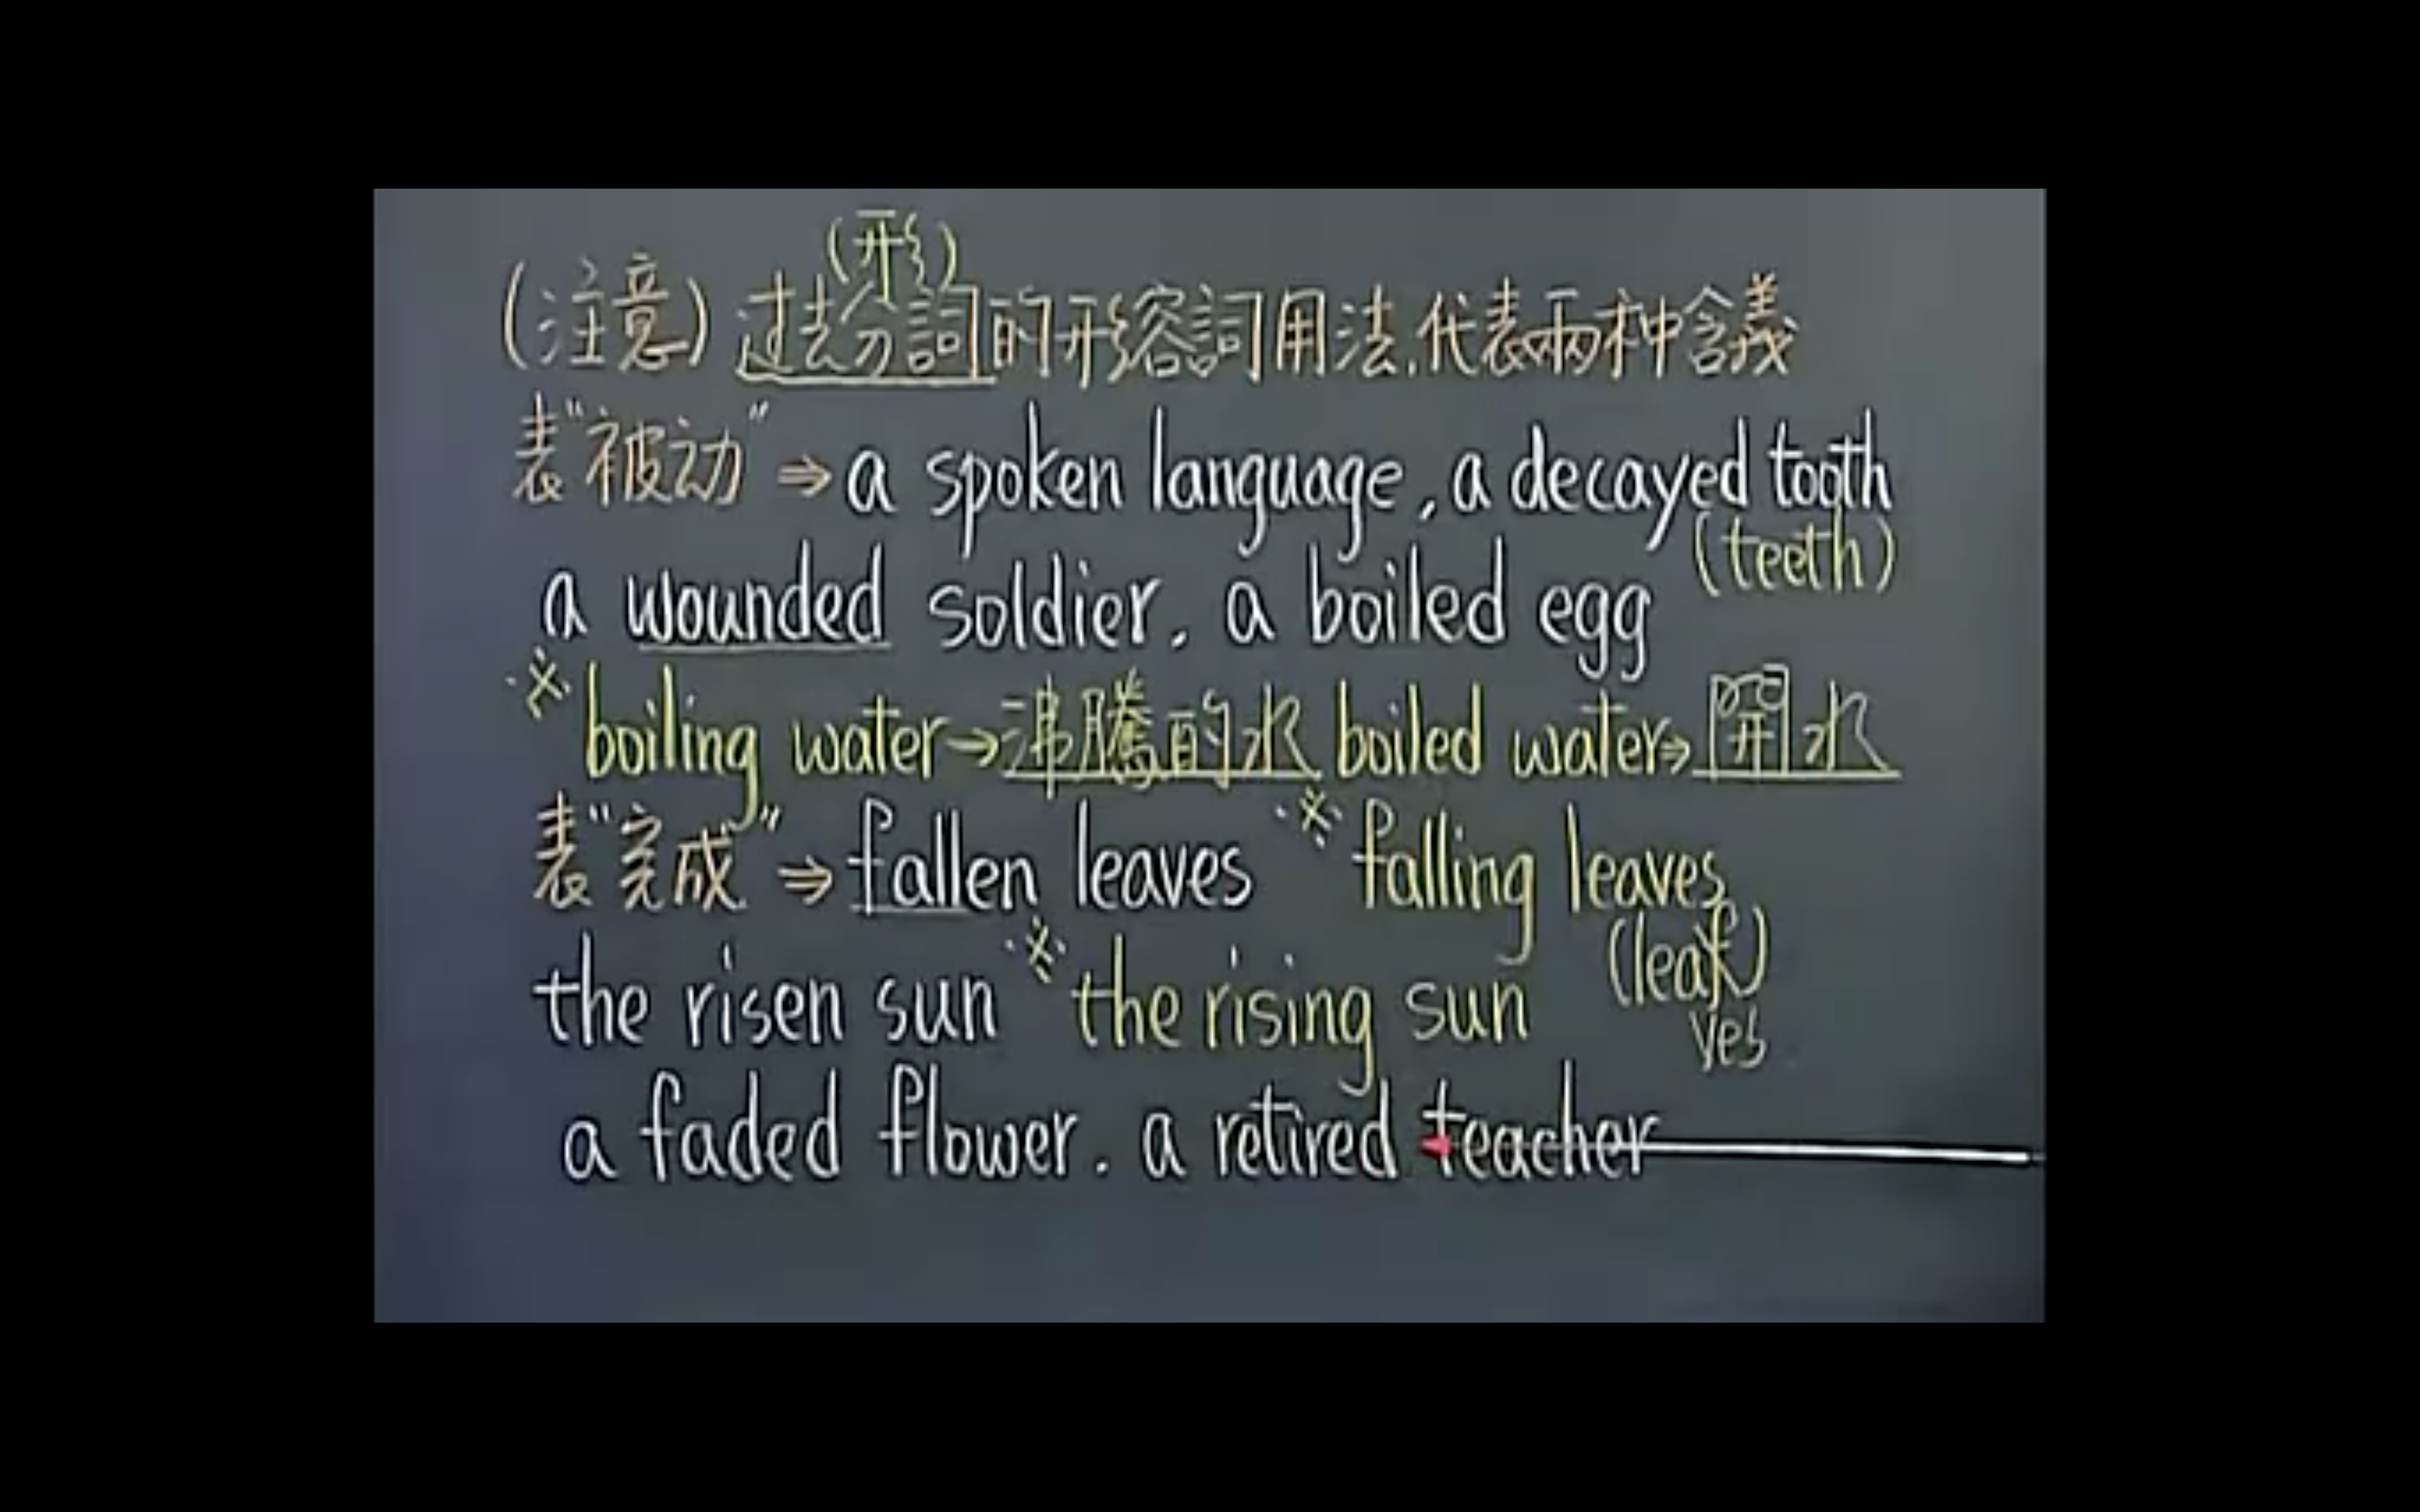 (形)
(注意)过去分詞的形容詞用法,代表兩种含義
表"被动"⇒a spoken language, a decayed tooth
(teeth)
a wounded soldier, a boiled egg
※boiling water→沸騰的水 boiled water⇒開水
表"完成"⇒fallen leaves ※falling leaves
(leaf)
ves
the risen sun ※the rising sun
a faded flower. a retired teacher